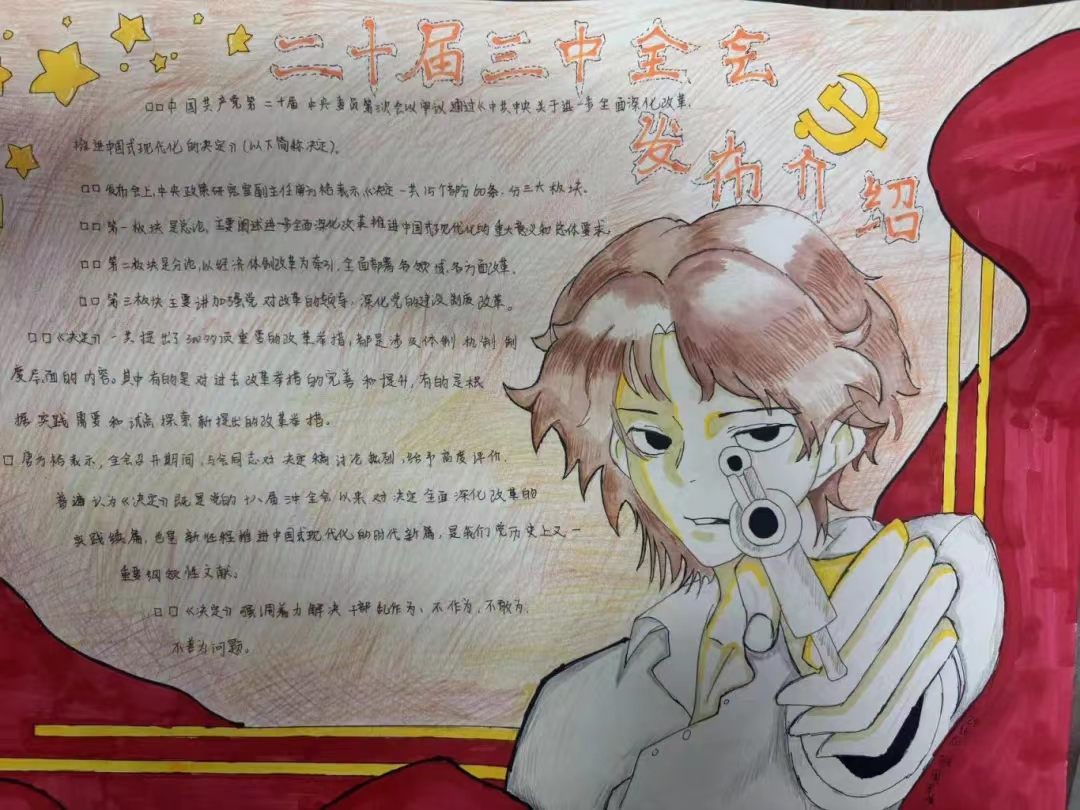 二十届三中全会
发布介绍
□□中国共产党第二十届中央委员第三次会议审议通过《中共中央关于进一步全面深化改革,
推进中国式现代化的决定》(以下简称决定)。
□□发布会上,中央政策研究室副主任唐方裕表示《决定一共15个部分60条、分三大板块、
□□第一板块是总论,主要阐述进一步全面深化改革推进中国式现代化的重大意义和总体要求。
□□第二板块是分论,以经济体制改革为牵引,全面部署各领域,各方面改革、
□□第三板块主要讲加强党对改革的领导、深化党的建设制度改革。
□□《决定》一共提出了300多项重要的改革举措,都是涉及体制机制制
度层面的内容。其中有的是对过去改革举措的完善和提升,有的是根
据实践需要和试点探索新提出的改革举措。
□唐方裕表示,全会召开期间,与会同志对决定稿讨论热烈,给予高度评价.
普遍认为《决定》既是党的十八届三中全会以来对决定全面深化改革的
实践续篇,也是新征程推进中国式现代化的时代新篇,是我们党历史上又一
重要纲领性文献。
□□《决定》强调着力解决干部乱作为、不作为,不敢为、
不善为问题。